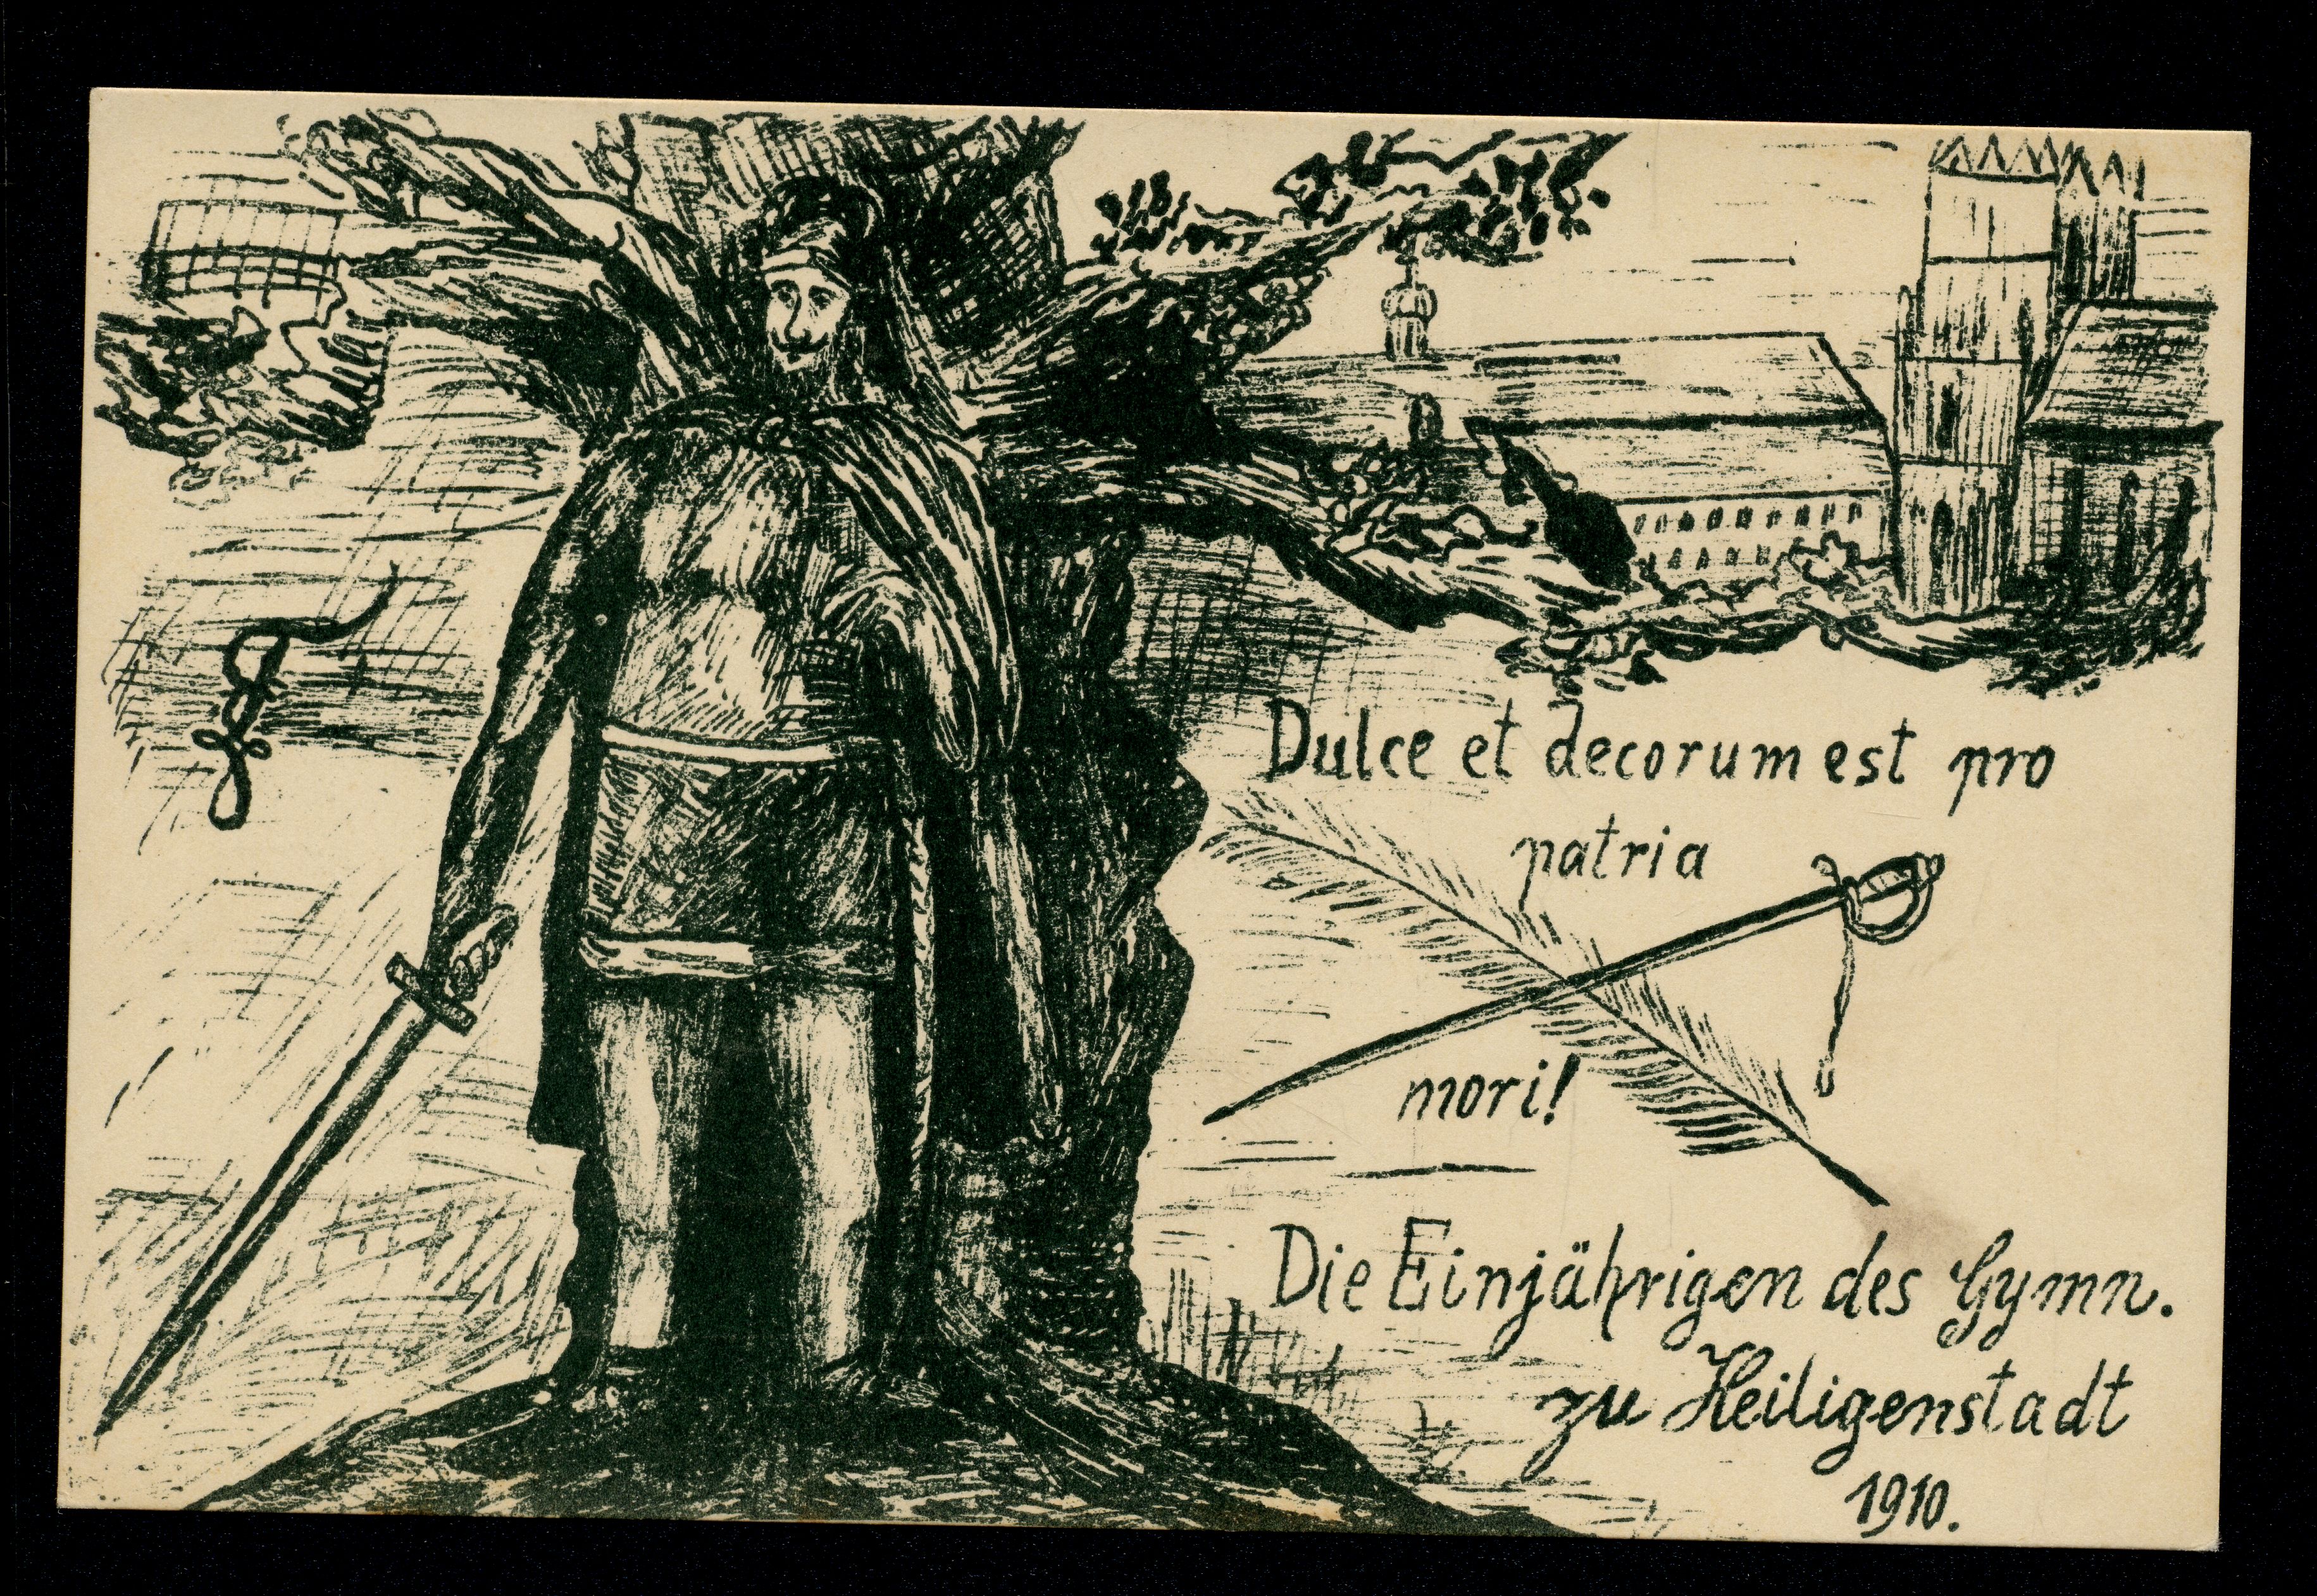 Dulce et decorum est pro
patria
mori!
Die Einjährigen des Gymn.
zu Heiligenstadt
1910.